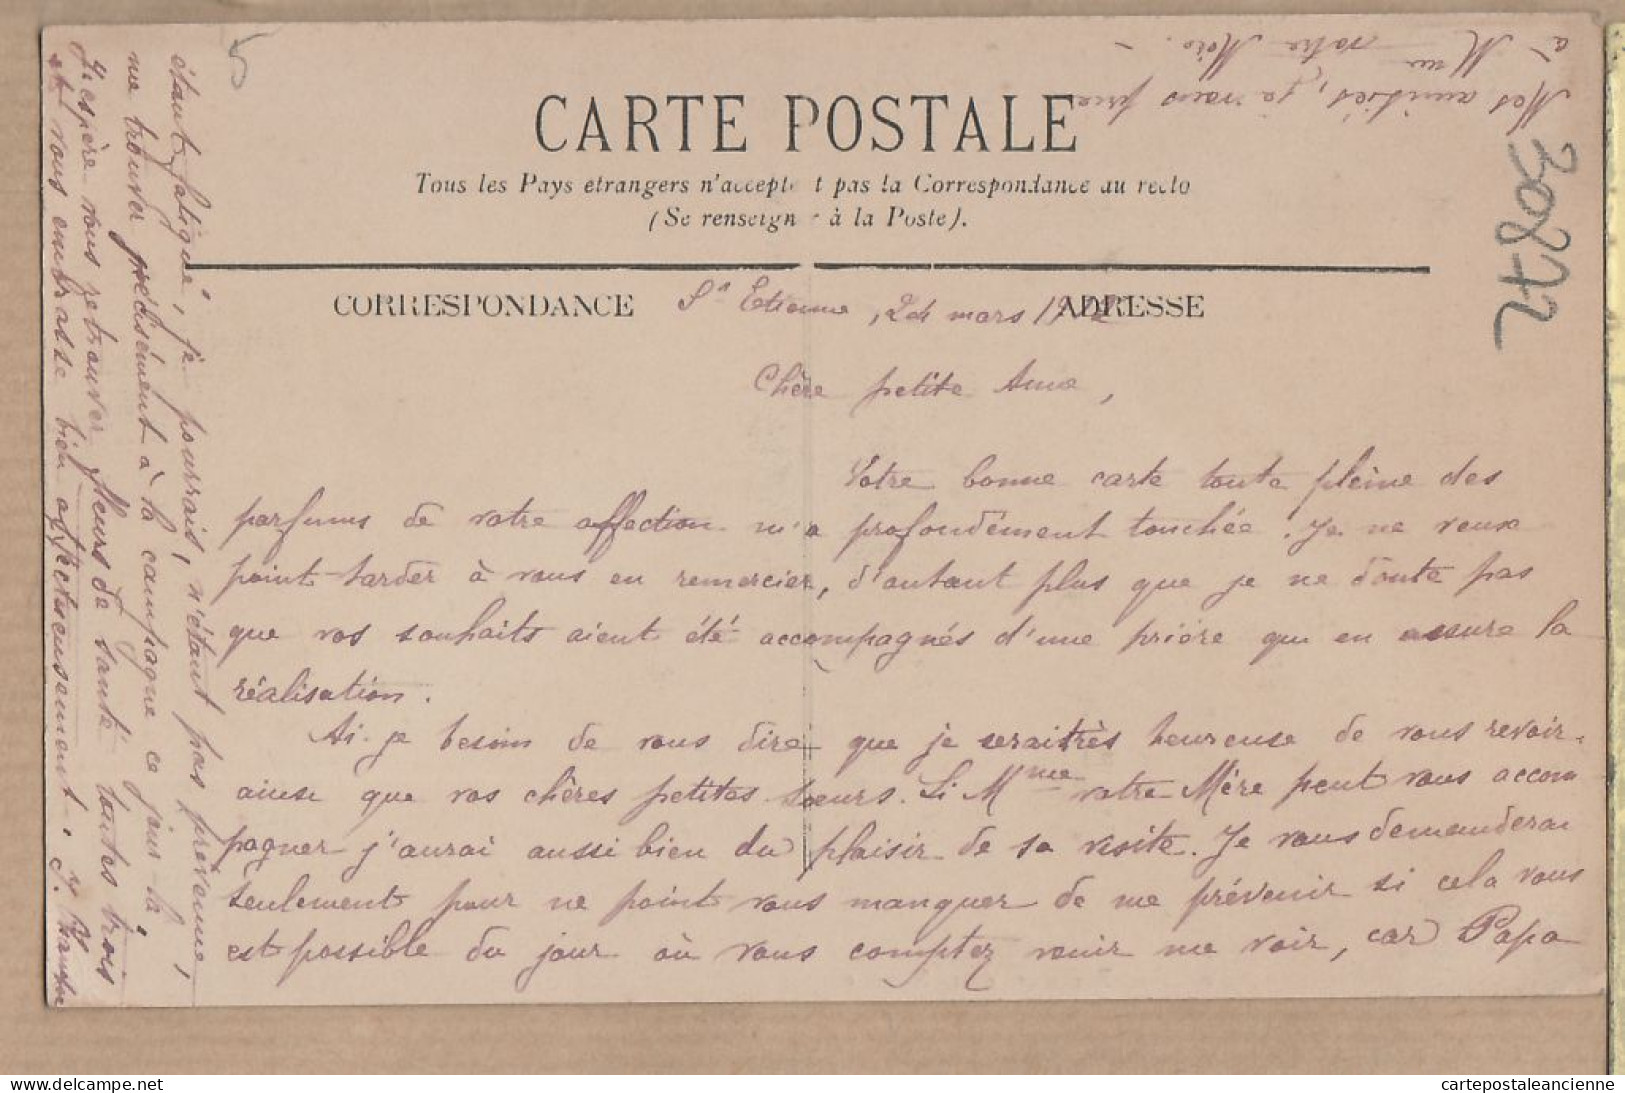 CARTE POSTALE
Tous les Pays étrangers n'acceptent pas la Correspondance au recto
(Se renseigner à la Poste).
CORRESPONDANCE
ADRESSE
St Etienne, 24 mars 19
Chère petite Anna,
Votre bonne carte toute pleine des
parfums de votre affection m'a profondément touchée. Je ne veux
point tarder à vous en remercier, d'autant plus que je ne doute pas
que vos souhaits aient été accompagnés d'une prière qui en assure la
réalisation.
Ai-je besoin de vous dire que je serais très heureuse de vous revoir
ainsi que vos chères petites sœurs. Si Mme votre Mère peut vous accom
pagner j'aurai aussi bien du plaisir de sa visite. Je vous demanderai
seulement pour ne point vous manquer de me prévenir si cela vous
est possible du jour où vous comptez venir me voir, car Papa
étant fatigué, je pourrais, n'étant pas prévenue,
me trouver précisément à la campagne ce jour-là.
J'espère vous retrouver fleurs de santé toutes trois
et vous embrasse bien affectueusement. J.
Mes amitiés, je vous prie
à Mme votre Mère. -
30872
cartepostaleancienne